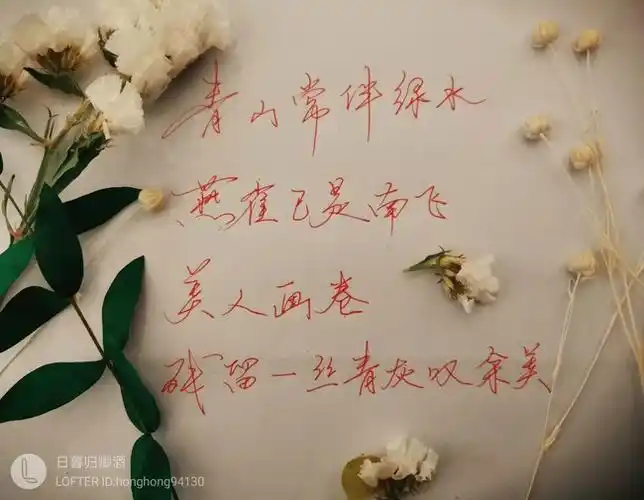 青山常伴绿水
燕雀已是南飞
美人画卷
残留一丝青灰叹余美
日暮归卿酒
LOFTER ID.honghong94130